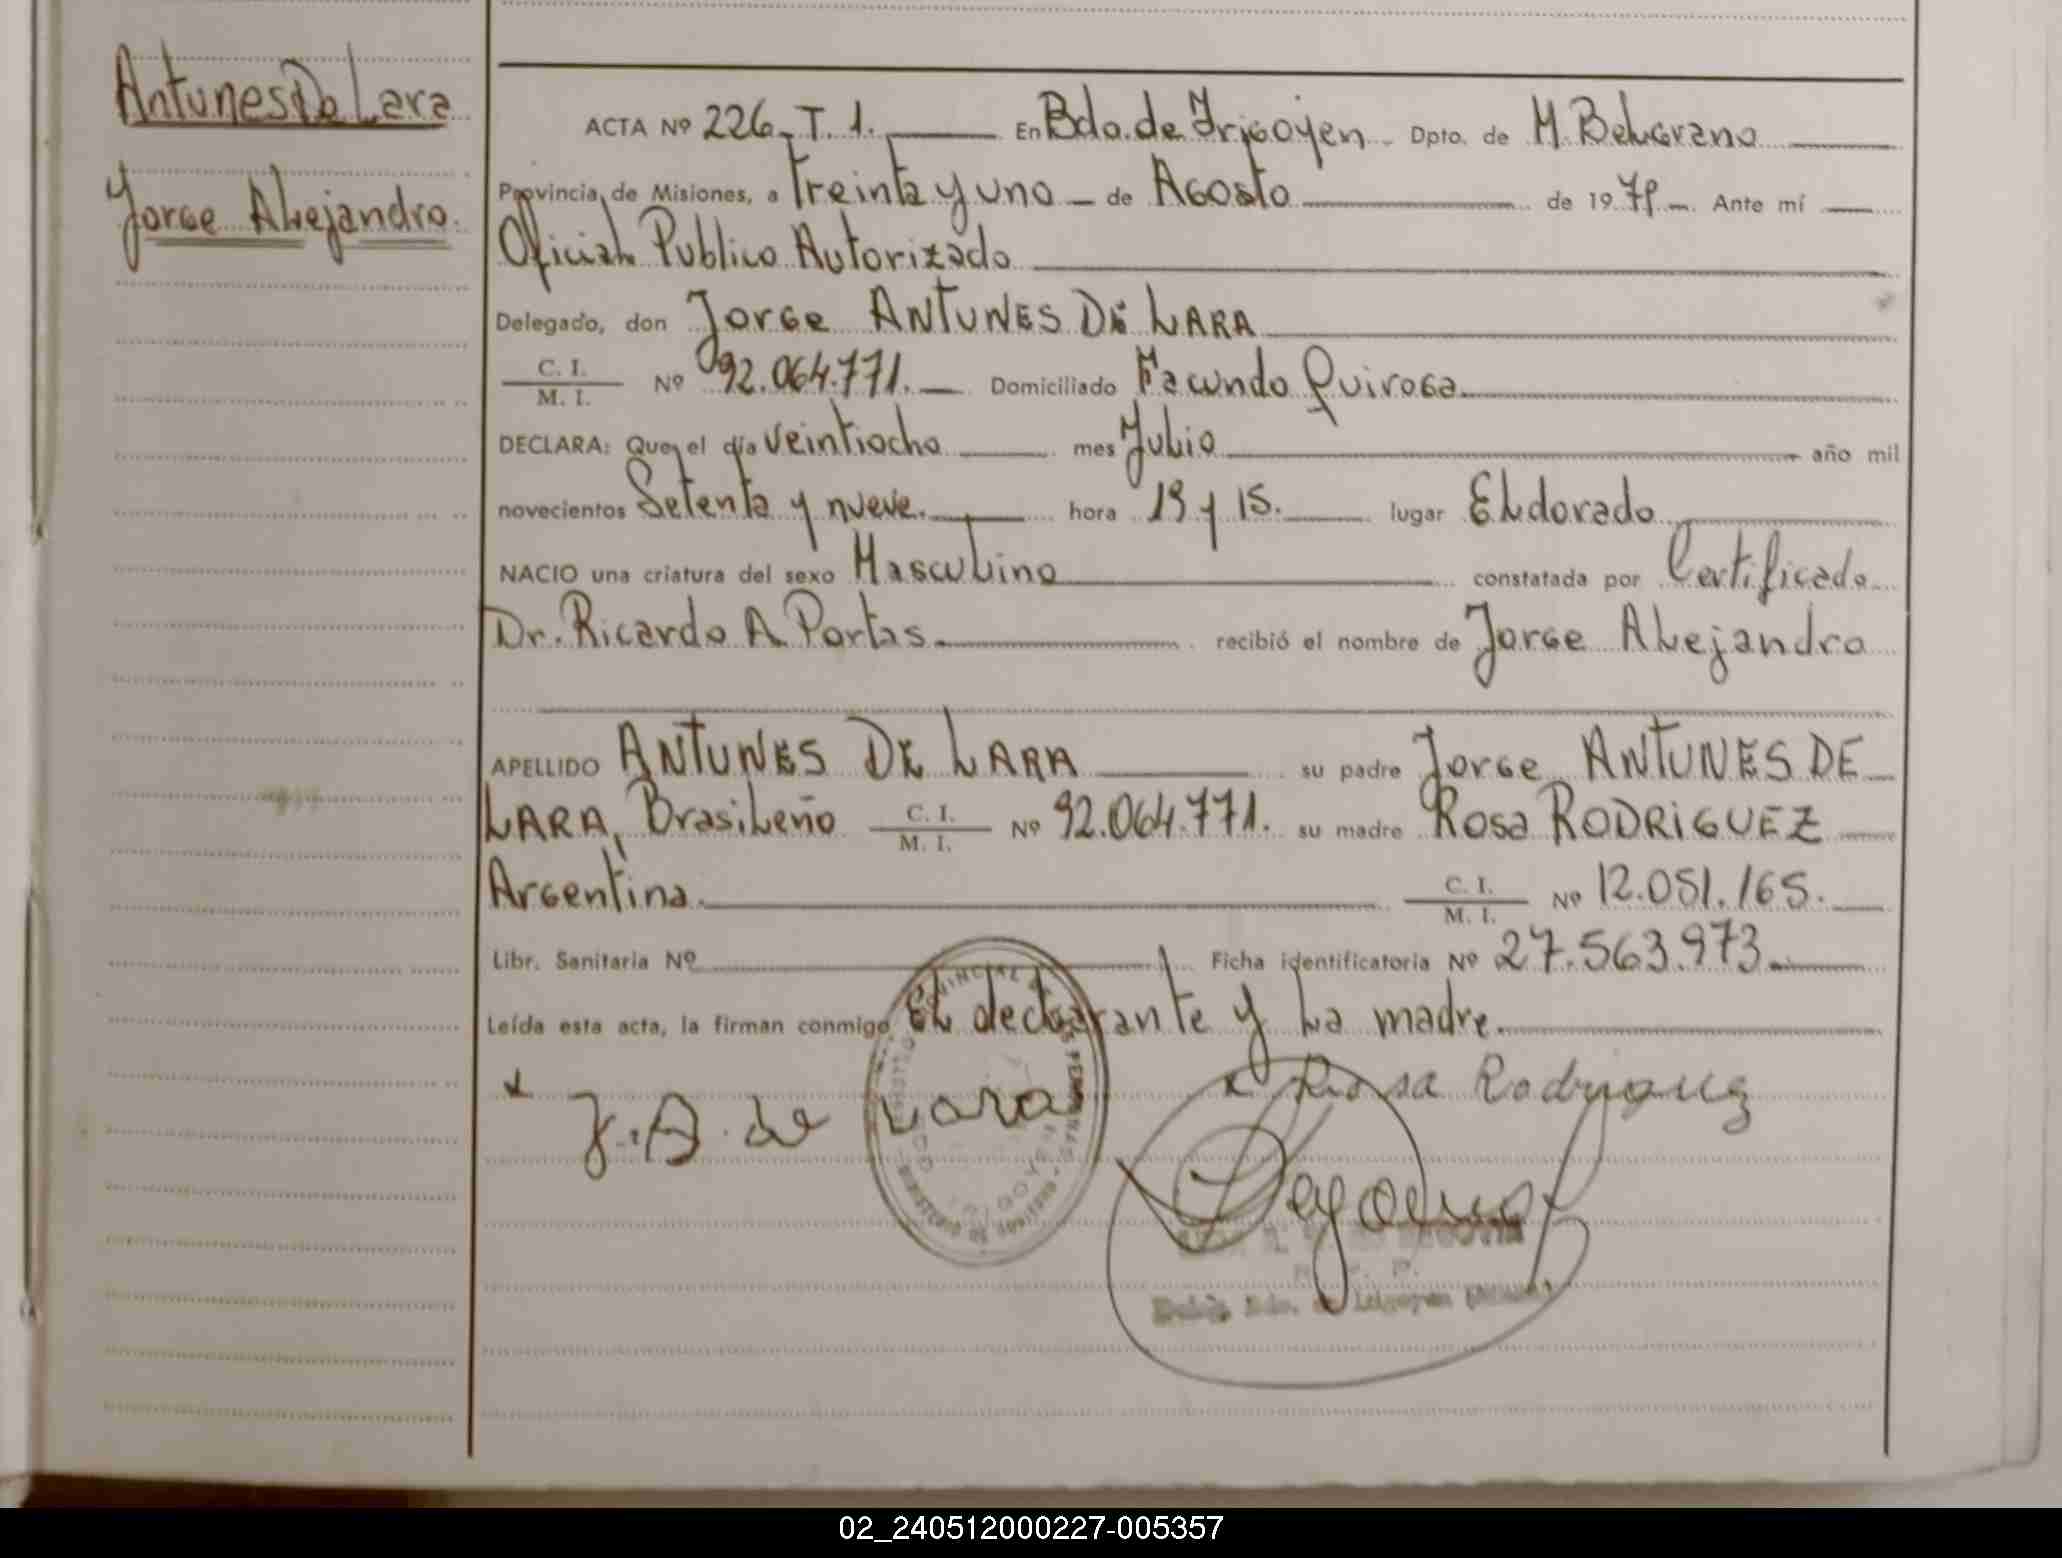 Antunes De Lara
Jorge Alejandro.
ACTA Nº 226. T. 1. En Bdo. de Irigoyen Dpto. de M. Belgrano
Provincia de Misiones, a treinta y uno de Agosto de 1979. Ante mí
Oficial Publico Autorizado
Delegado, don Jorge ANTUNES DE LARA
C. I.
M. I. Nº 92.064.771. Domiciliado Facundo Quiroga
DECLARA: Que el día veintiocho mes Julio año mil
novecientos Setenta y nueve. hora 19 y 15. lugar Eldorado
NACIO una criatura del sexo Masculino constatada por Certificado
Dr. Ricardo A. Portas recibió el nombre de Jorge Alejandro
APELLIDO ANTUNES DE LARA su padre Jorge ANTUNES DE
LARA, Brasileño C. I.
M. I. Nº 92.064.771. su madre Rosa RODRIGUEZ
Argentina. C. I.
M. I. Nº 12.051.165.
Libr. Sanitaria Nº Ficha identificatoria Nº 27.563.973
Leída esta acta, la firman conmigo El declarante y La madre.
J. A. de Lara
x Rosa Rodriguez
02_240512000227-005357